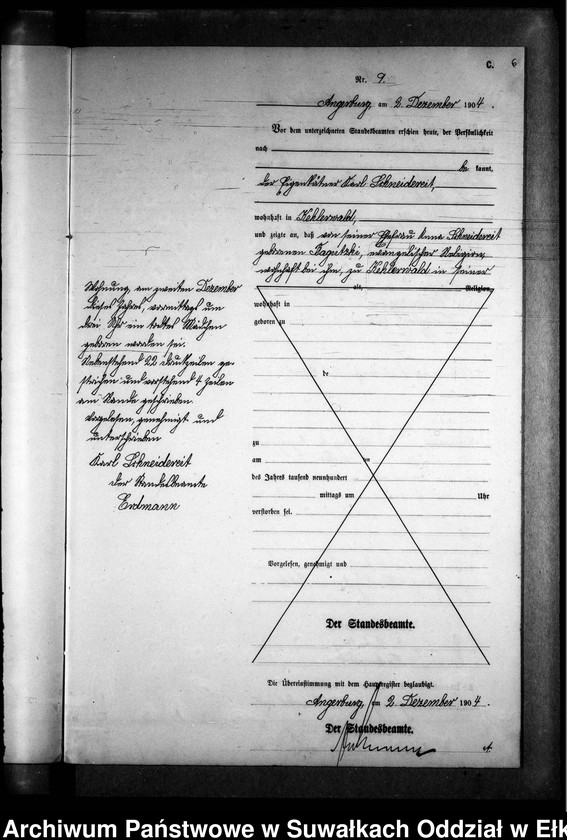 C. 6
Nr. 9.
Angerburg am 2. Dezember 1904.
Vor dem unterzeichneten Standesbeamten erschien heute, der Persönlichkeit
nach
be kannt,
der Eigenkätner Karl Schneidereit,
wohnhaft in Kehlerwald,
und zeigte an, daß von seiner Ehefrau Anna Schneidereit
geborenen evangelischer Religion,
wohnhaft bei ihm, zu Kehlerwald in seiner
alt, Religion,
wohnhaft in
geboren zu
de
zu
am ten
des Jahres tausend neunhundert
mittags um Uhr
verstorben sei.
Vorgelesen, genehmigt und
Der Standesbeamte.
Wohnung, am zweiten Dezember
dieses Jahres, vormittags um
drei Uhr ein totes Mädchen
geboren worden sei.
Nebenstehend 22 Druckzeilen ge-
strichen und vorstehend 4 Zeilen
am Rande geschrieben.
Vorgelesen, genehmigt und
unterschrieben
Karl Schneidereit
Der Standesbeamte
Erdmann
Die Übereinstimmung mit dem Hauptregister beglaubigt.
Angerburg, am 2. Dezember 1904.
Der Standesbeamte.
Erdmann
Archiwum Państwowe w Suwałkach Oddział w Ełk